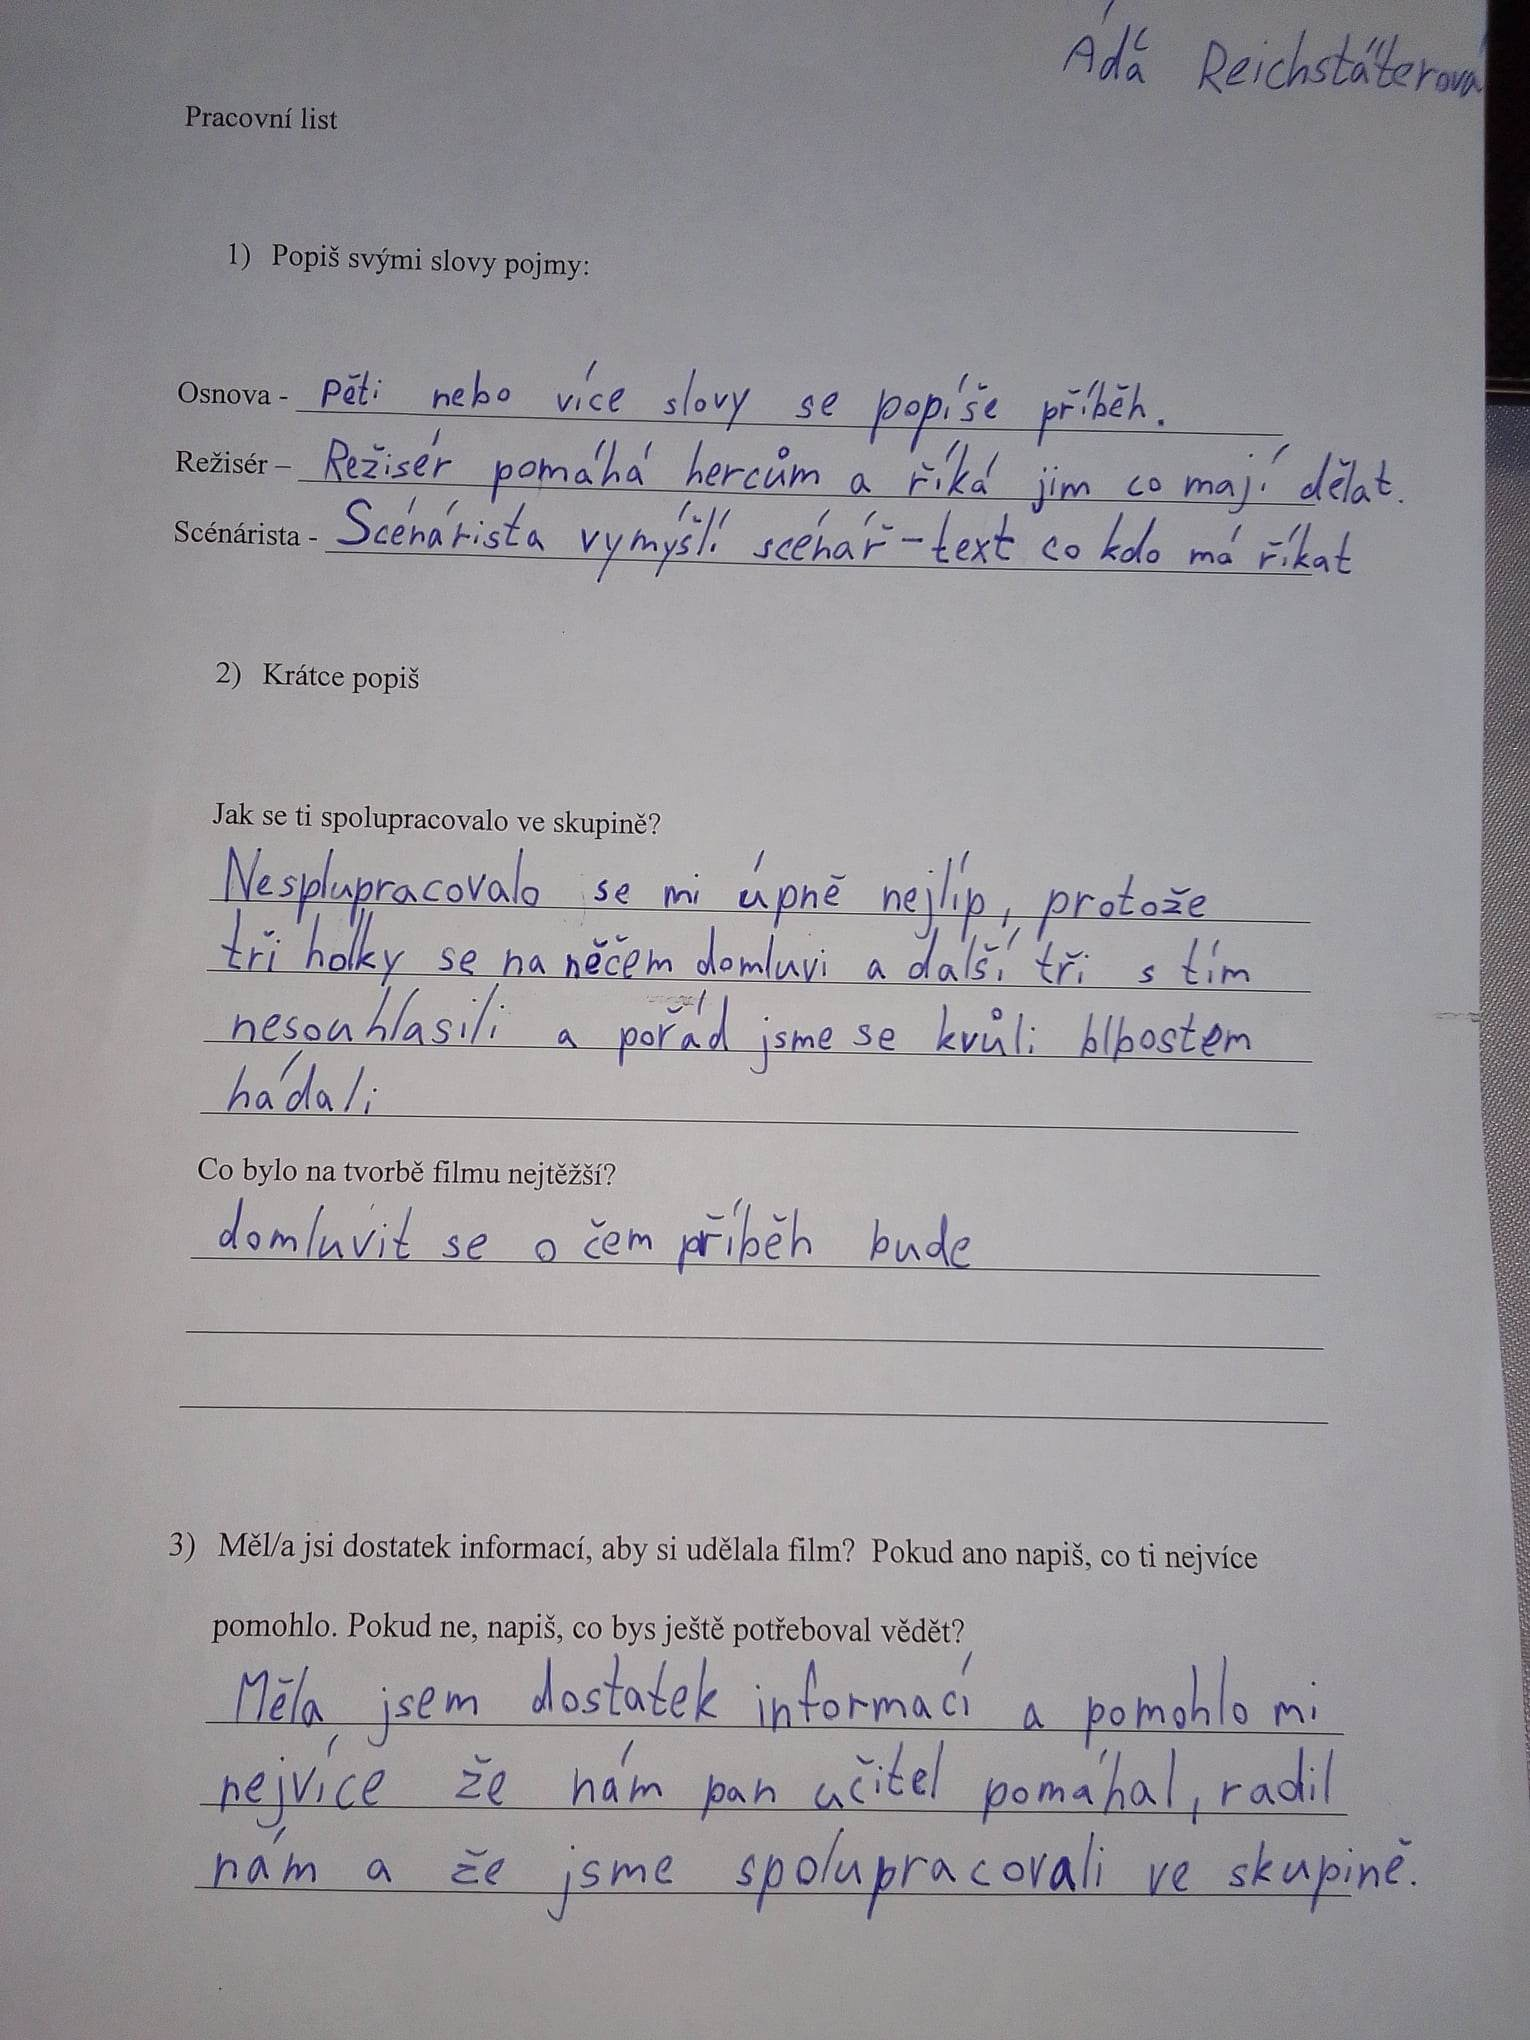 Adá Reichstäterová
Pracovní list
1) Popiš svými slovy pojmy:
Osnova - Pěti nebo více slovy se popíše příběh.
Režisér – Režisér pomáhá hercům a říká jim co mají dělat.
Scénárista - Scénárista vymýšlí scénář - text co kdo má říkat
2) Krátce popiš
Jak se ti spolupracovalo ve skupině?
Nesplupracovalo se mi úpně nejlíp, protože
tři holky se na něčem domluvi a další tři s tím
nesouhlasili a pořád jsme se kvůli blbostem
hádali
Co bylo na tvorbě filmu nejtěžší?
domluvit se o čem příběh bude
3) Měl/a jsi dostatek informací, aby si udělala film? Pokud ano napiš, co ti nejvíce
pomohlo. Pokud ne, napiš, co bys ještě potřeboval vědět?
Měla jsem dostatek informací a pomohlo mi
nejvíce že nám pan učitel pomáhal, radil
nám a že jsme spolupracovali ve skupině.